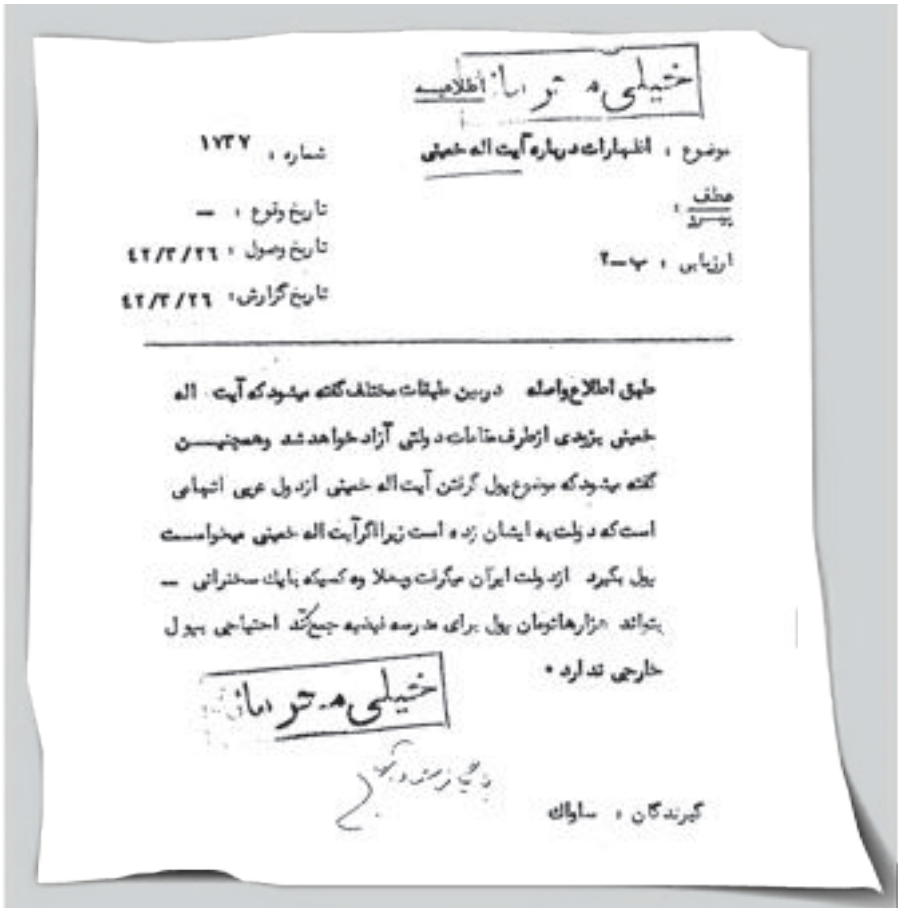 خیلی محرمانه
اطلاعیه
موضوع : اظهارات درباره آیت اله خمینی
شماره : ۱۷۳۷
عطف :
پیرو
تاریخ وقوع : —
تاریخ وصول : ۴۲/۳/۲۶
ارزیابی : ب—۲
تاریخ گزارش: ۴۲/۳/۲۶
طبق اطلاع واصله دربین طبقات مختلف گفته میشود که آیت اله
خمینی بزودی ازطرف مقامات دولتی آزاد خواهد شد وهمچنیـــن
گفته میشود که موضوع پول گرفتن آیت اله خمینی ازدول عربی اتهامی
است که دولت به ایشان زده است زیرا اگرآیت اله خمینی میخواسـت
پول بگیرد ازدولت ایران میگرفت وبعلاوه کسیکه بایك سخنرانی —
بتواند هزارهاتومان پول برای مدرسه فیضیه جمع کند احتیاجی بپول
خارجی ندارد •
خیلی محرمانه
گیرندگان : ساواك